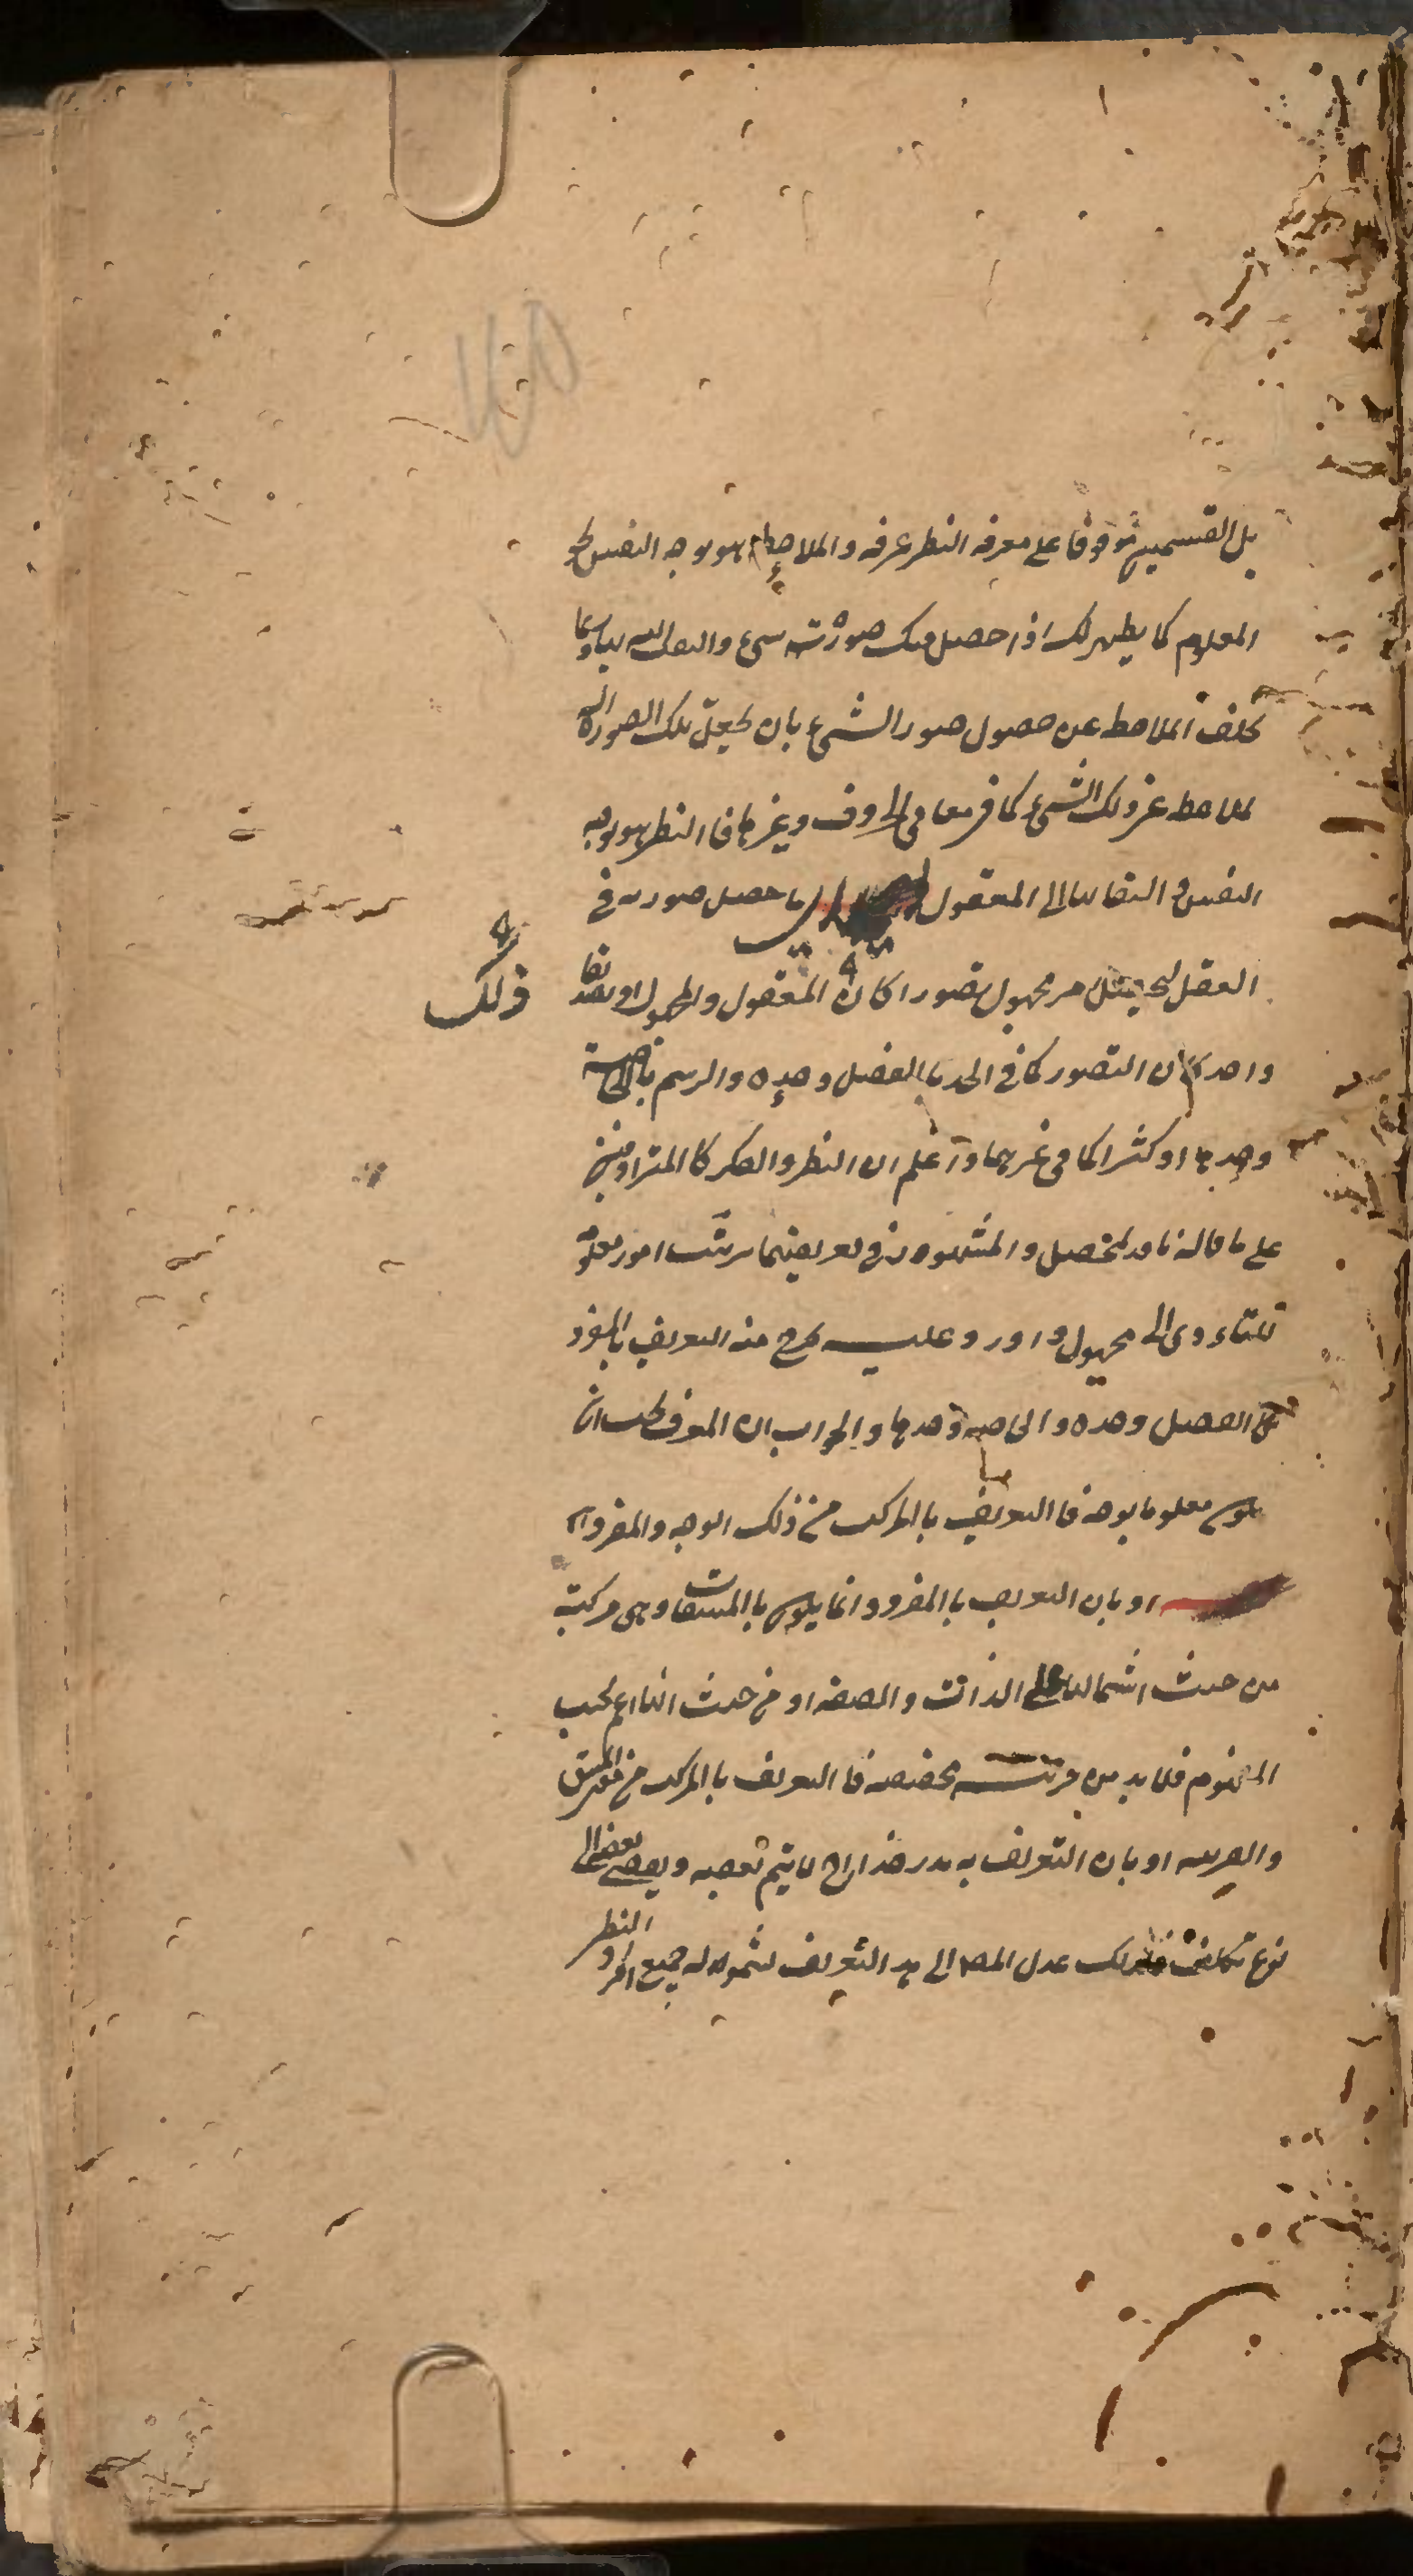 بل القسمين موقوفا على معرفة النظر عرفه والملاحظة هو توجه النفس نحو
المعلوم كما يظهر لك اذا حصل منك صورت شيء والتفات اليه
تخلف الملاحظة عن حصول صور الشيء بان يجعل تلك الصورة الة
لملاحظة غير ذلك الشيء كما في الحروف وغيرها فالنظر هو توجه
النفس والتفاتها الى المعقول ما حصل صورته في
العقل لتحصيل مجهول تصورا كان المعقول والمجهول او تصديقا
ذلك
واحدا كان التصور كما في الحد با الفصل وحده والرسم بالخاصة
وحدها او كثيرا كما في غيرهما و اعلم ان النظر والفكر كا المترادفين
على ما قاله ناقد المحصل والمشهور في تعريفهما ترتيب امور معلومة
للتاءدى الى مجهول و اورد عليه خرج منه التعريف بالمفرد
كا الفصل وحده والخاصة وحدها والجواب ان المعرف يجب ان
يكون معلوما بوجه فا التعريف با المركب من ذلك الوجه والمفرد
او بان التعريف با المفرد انما يكون با المشتقات وهي مركبة
من حيث اشتمالها على الذات والصفة او من حيث انها اعم بحسب
المفهوم فلا بد من قرينة مخصصة فا التعريف با المركب من المشتق
والقرينة او بان التعريف به نادر خداج لا يتم بعضه وبعضه الى
نوع تكلف فلذلك عدل المصـ الى هذا التعريف لشموله جميع افراد النظر